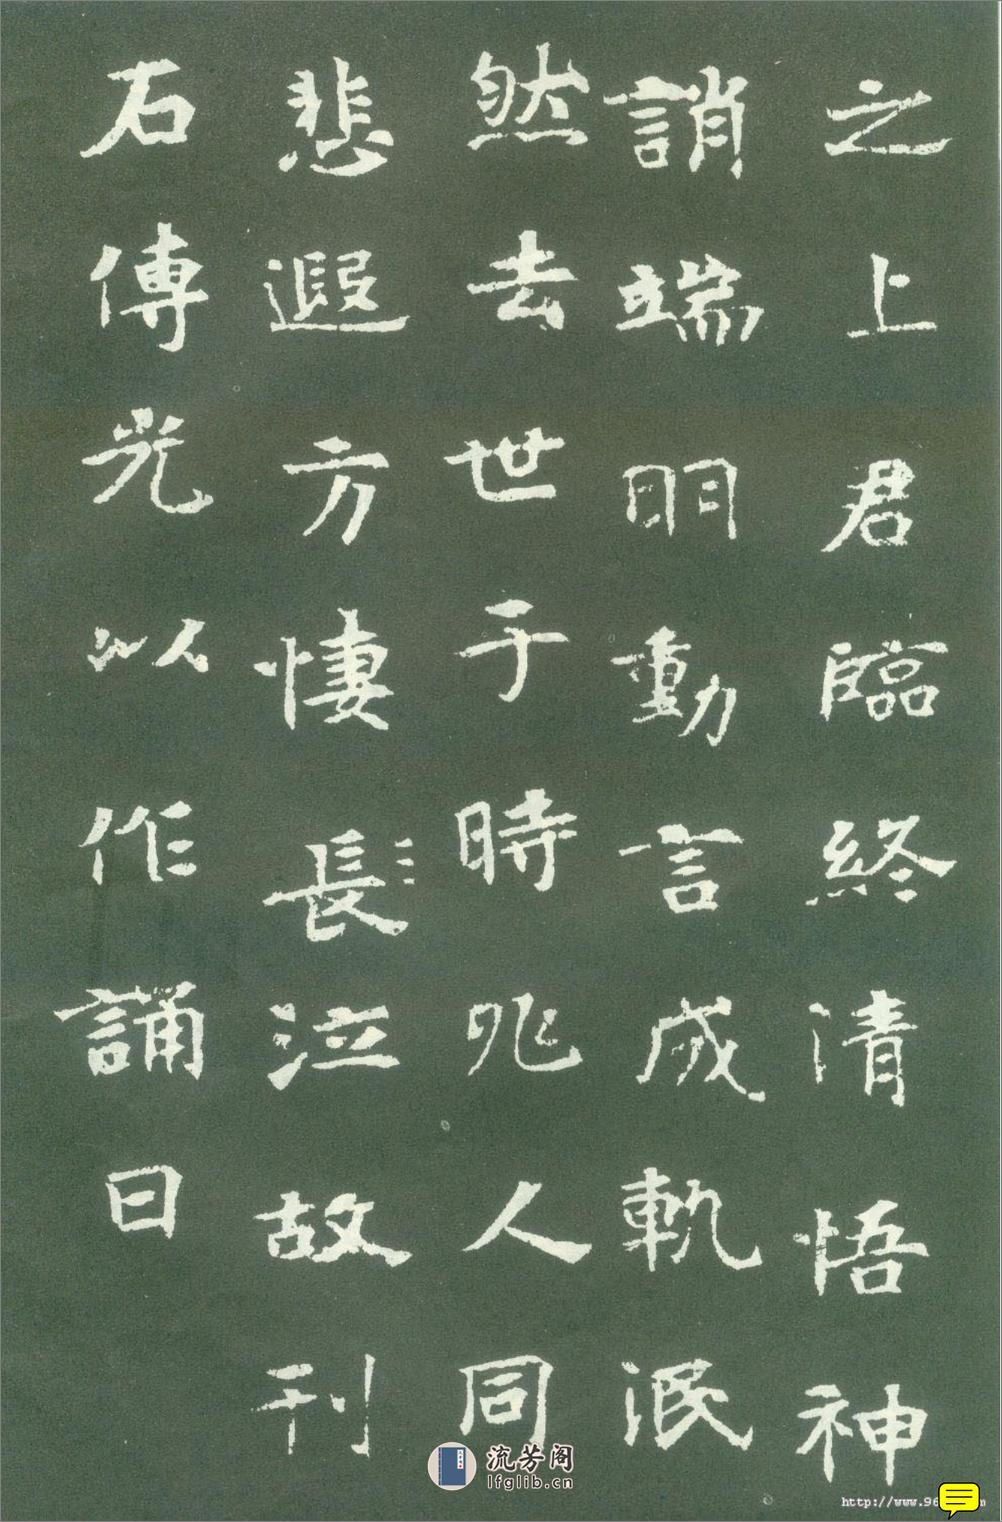 之上君臨終清悟神
誚端明動言成軌泯
然去世于時凡人同
悲遐方悽長泣故刊
石傳光以作誦曰
流芳阁
lfglib.cn
http://www.96